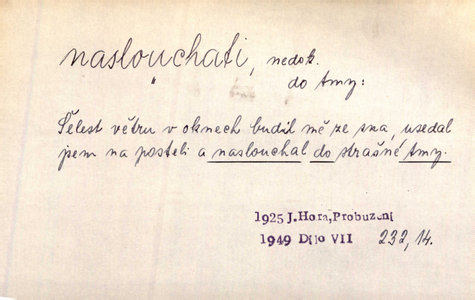 naslouchati, nedok.
do tmy:
Šelest větru v oknech budil mě ze sna, usedal
jsem na posteli a naslouchal do strašné tmy.
1925 J.Hora,Probuzení
1949 Dílo VII 232,14.